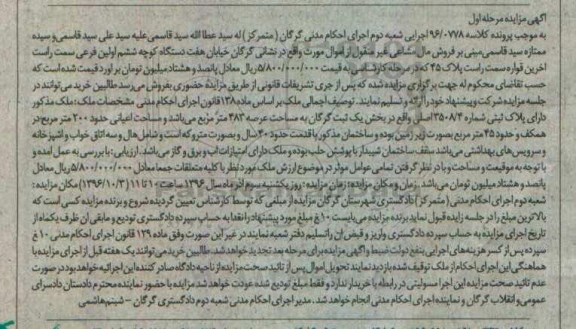 آگهی مزایده مرحله اول
به موجب پرونده کلاسه ۹۶/۰۷۷۸ اجرایی شعبه دوم اجرای احکام مدنی گرگان (متمرکز) له سید عطا الله سید قاسمی علیه سید علی سید قاسمی و سیده
ممتازه سید قاسمی مبنی بر فروش مال مشاعی غیر منقول از اموال مورث واقع در نشانی گرگان خیابان هفت دستگاه کوچه ششم اولین فرعی سمت راست
آخرین قواره سمت راست پلاک ۴۵ که در مرحله کارشناسی به قیمت ۵/۸۰۰/۰۰۰/۰۰۰ ریال معادل پانصد و هشتاد میلیون تومان برآورد قیمت شده است که
حسب تقاضای محکوم له جهت برگزاری مزایده شده که پس از جری تشریفات قانونی از طریق مزایده حضوری بفروش می‌رسد طالبین خرید می توانند در
جلسه مزایده شرکت و پیشنهاد خود را ارائه و تسلیم نمایند. توصیف اجمالی ملک بر اساس ماده ۱۳۸ قانون اجرای احکام مدنی مشخصات ملک: ملک مذکور
دارای پلاک ثبتی شماره ۳۵۰۸/۴ اصلی واقع در بخش یک ثبت گرگان به مساحت عرصه ۴۸۳ متر مربع می باشد و مساحت اعیانی حدود ۲۰۰ متر مربع در
همکف و حدود ۴۵ متر مربع بصورت زیر زمین بوده و ساختمان مذکور با قدمت حدود ۴۰ سال و بصورت متروکه است و شامل هال و سه اتاق خواب و آشپزخانه
و سرویس های بهداشتی می باشد سقف ساختمان شیبدار با پوشش حلب بوده و ملک دارای امتیازات آب و برق و گاز می باشد. ارزیابی: با بررسی به عمل آمده و
با توجه به موقعیت و مساحت و با در نظر گرفتن تمامی عوامل موثر در موضوع ارزش ملک مورد نظر با کلیه متعلقات جمعا معادل ۵/۸۰۰/۰۰۰/۰۰۰ ریال معادل
پانصد و هشتاد میلیون تومان می باشد. زمان و مکان مزایده: زمان مزایده: روز یکشنبه سوم آذر ماه سال ۱۳۹۶ ساعت ۱۰ تا ۱۱ (۱۳۹۶/۱۰/۳) مکان مزایده:
شعبه دوم اجرای احکام مدنی (متمرکز) دادگستری شهرستان گرگان مزایده از مبلغی که توسط کارشناس تعیین گردیده شروع و برنده مزایده کسی است که
بالاترین مبلغ را در جلسه زایده قبول نماید برنده مزایده می بایست ۱۰٪ مبلغ مورد پیشنهاد را نقدا به حساب سپرده دادگستری تودیع و مابقی آن ظرف یکماه از
تاریخ اجرای مزایده به حساب سپرده دادگستری واریز و قبض آن را تسلیم دفتر شعبه نمایند در غیر این صورت وفق ماده ۱۲۹ قانون اجرای احکام مدنی ۱۰٪
سپرده پس از کسر هزینه های اجرایی بنفع دولت ضبط و آگهی مزایده برای مرحله بعد تجدید خواهد شد. طالبین خرید می توانند یک هفته قبل از اجرای مزایده با
هماهنگی این اجرای احکام از ملک توقیف شده بازدید نمایند تحویل اموال پس از تائید صحت مزایده از ناحیه دادگاه صادر کننده این اجرائیه خواهد بود در صورت
عدم تائید صحت مزایده این اجرا مسولیتی در رابطه با خریدار ندارد و فقط مبلغ تودیع شده عودت خواهد شد مزایده با حضور نماینده محترم دادستان دادسرای
عمومی و انقلاب گرگان و نماینده اجرای احکام مدنی انجام خواهد شد. مدیر اجرای احکام مدنی شعبه دوم دادگستری گرگان - شبنم هاشمی